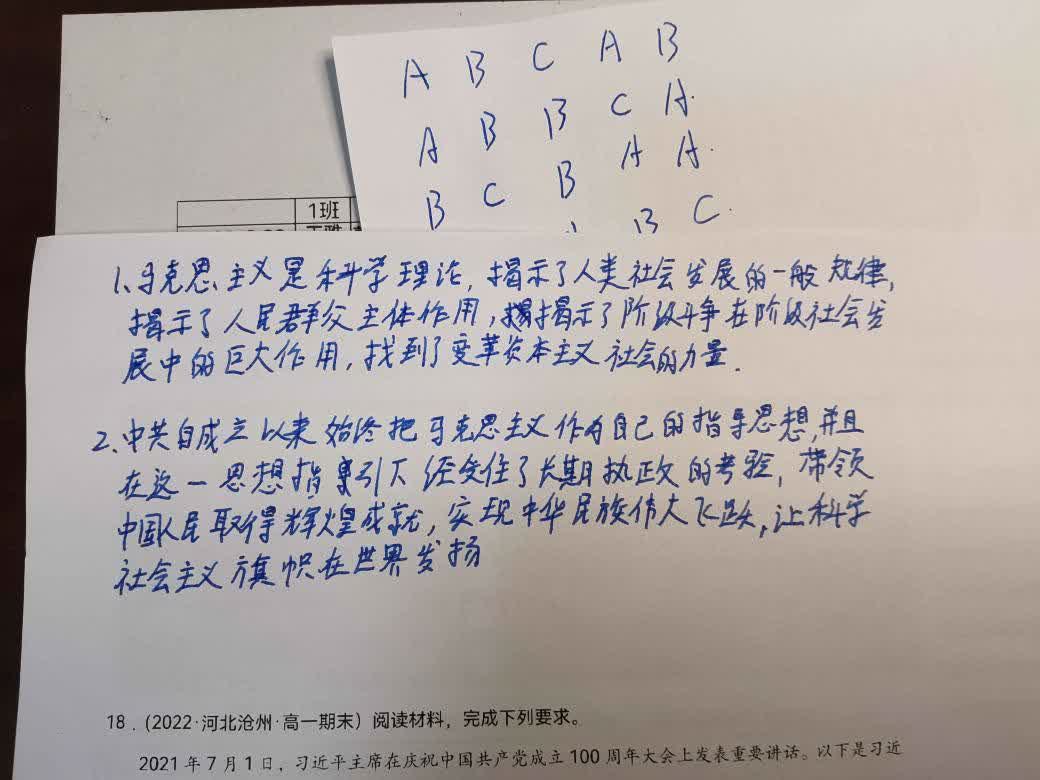 A B C A B
A B B C A.
B C B A A.
B C.
1班
1、马克思主义是科学理论，揭示了人类社会发展的一般规律，
揭示了人民群众主体作用，揭示了阶级斗争在阶级社会发
展中的巨大作用，找到了变革资本主义社会的力量.
2、中共自成立以来始终把马克思主义作为自己的指导思想，并且
在这一思想指引下经受住了长期执政的考验，带领
中国人民取得辉煌成就，实现中华民族伟大飞跃，让科学
社会主义旗帜在世界发扬
18．(2022·河北沧州·高一期末）阅读材料，完成下列要求。
2021年7月1日，习近平主席在庆祝中国共产党成立100周年大会上发表重要讲话。以下是习近